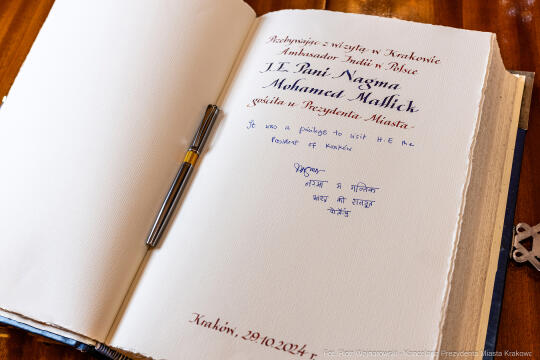 Przebywając z wizytą w Krakowie
Ambasador Indii w Polsce
J.E. Pani Nagma
Mohamed Mallick
gościła u Prezydenta Miasta
It was a privilege to visit H.E the
President of Krakow
नगमा म मल्लिक
भारत की राजदूत
पोलैंड
Kraków, 29.10.2024 r.
Fot. Piotr Wojnarowski - Kancelaria Prezydenta Miasta Krakowa